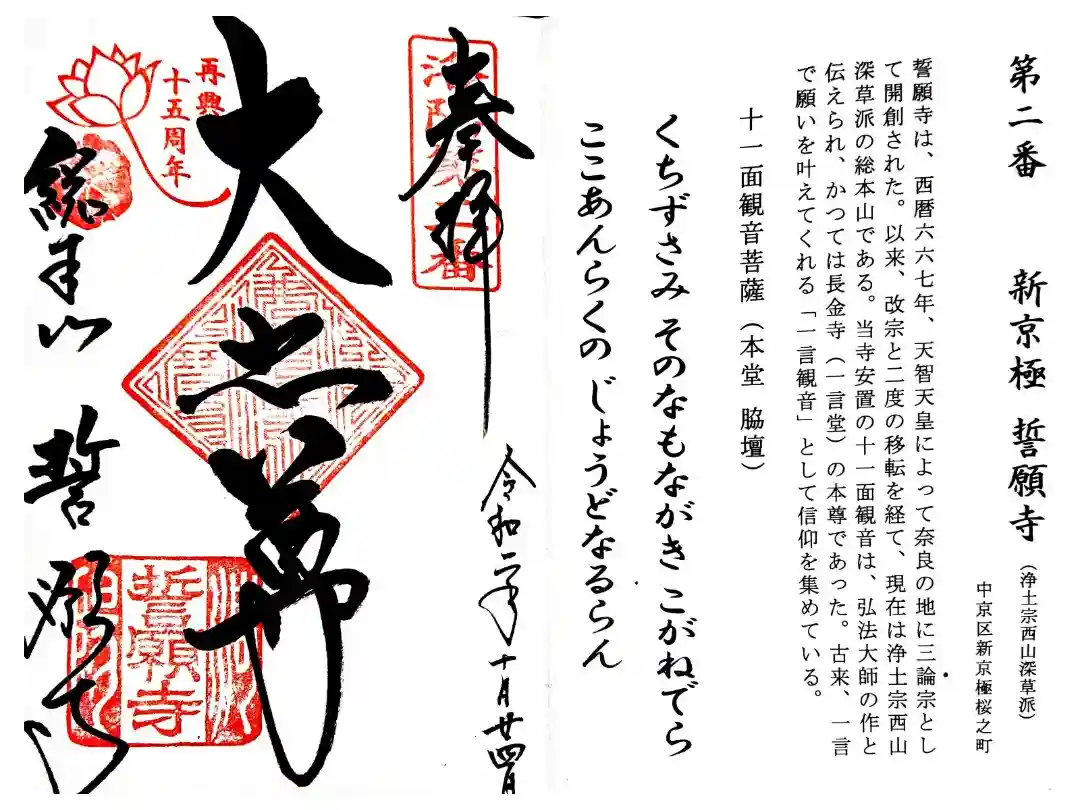 第二番　新京極 誓願寺（浄土宗西山深草派）
中京区新京極桜之町
誓願寺は、西暦六六七年、天智天皇によって奈良の地に三論宗とし
て開創された。以来、改宗と二度の移転を経て、現在は浄土宗西山
深草派の総本山である。当寺安置の十一面観音は、弘法大師の作と
伝えられ、かつては長金寺（一言堂）の本尊であった。古来、一言
で願いを叶えてくれる「一言観音」として信仰を集めている。
十一面観音菩薩（本堂　脇壇）
くちずさみ そのなもながき こがねでら
ここあんらくの じょうどなるらん
奉拝
令和二年十月廿四日
大悲尊
再興
十五周年
総本山　誓願寺
誓願寺